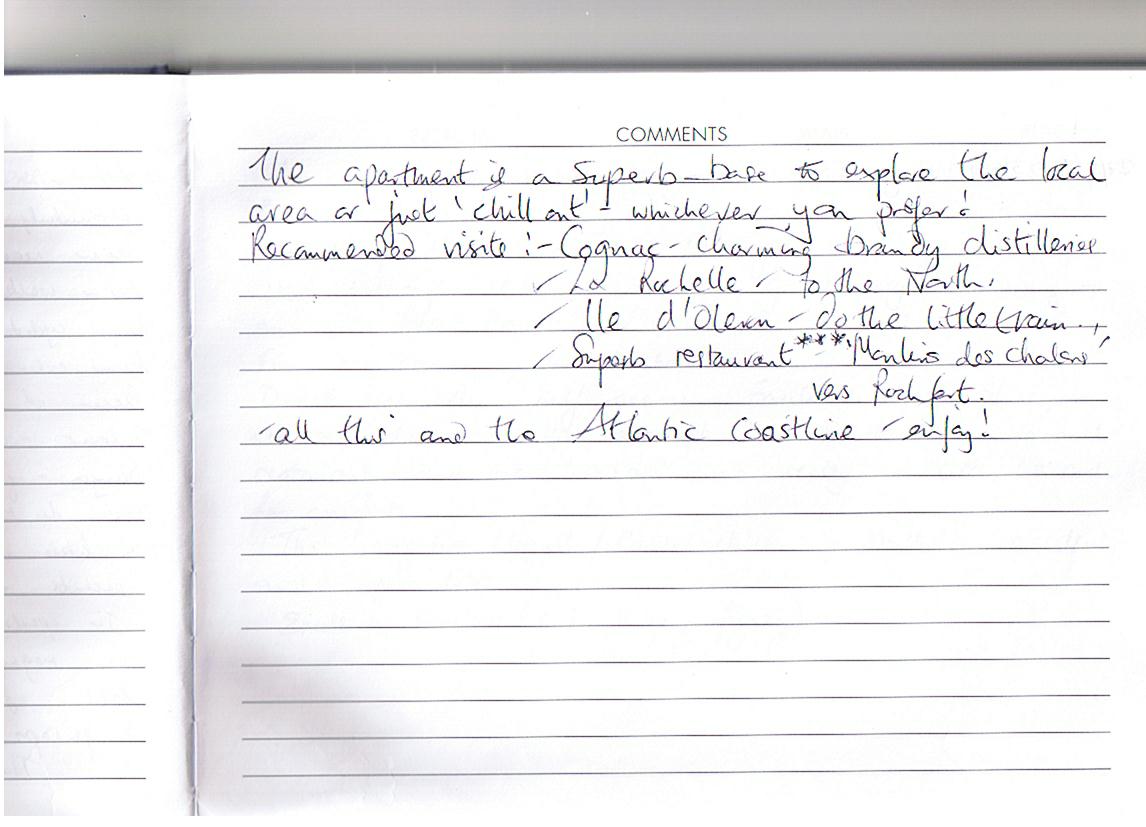 COMMENTS
The apartment is a superb base to explore the local
area or just 'chill out' - whichever you prefer!
Recommended visits :- Cognac - charming brandy distilleries
- La Rochelle - to the North.
- Ile d'Oleron - do the little train.
- Superb restaurant *** 'Moulins des chalons'
vers Rochfort.
- all this and the Atlantic Coastline - enjoy!